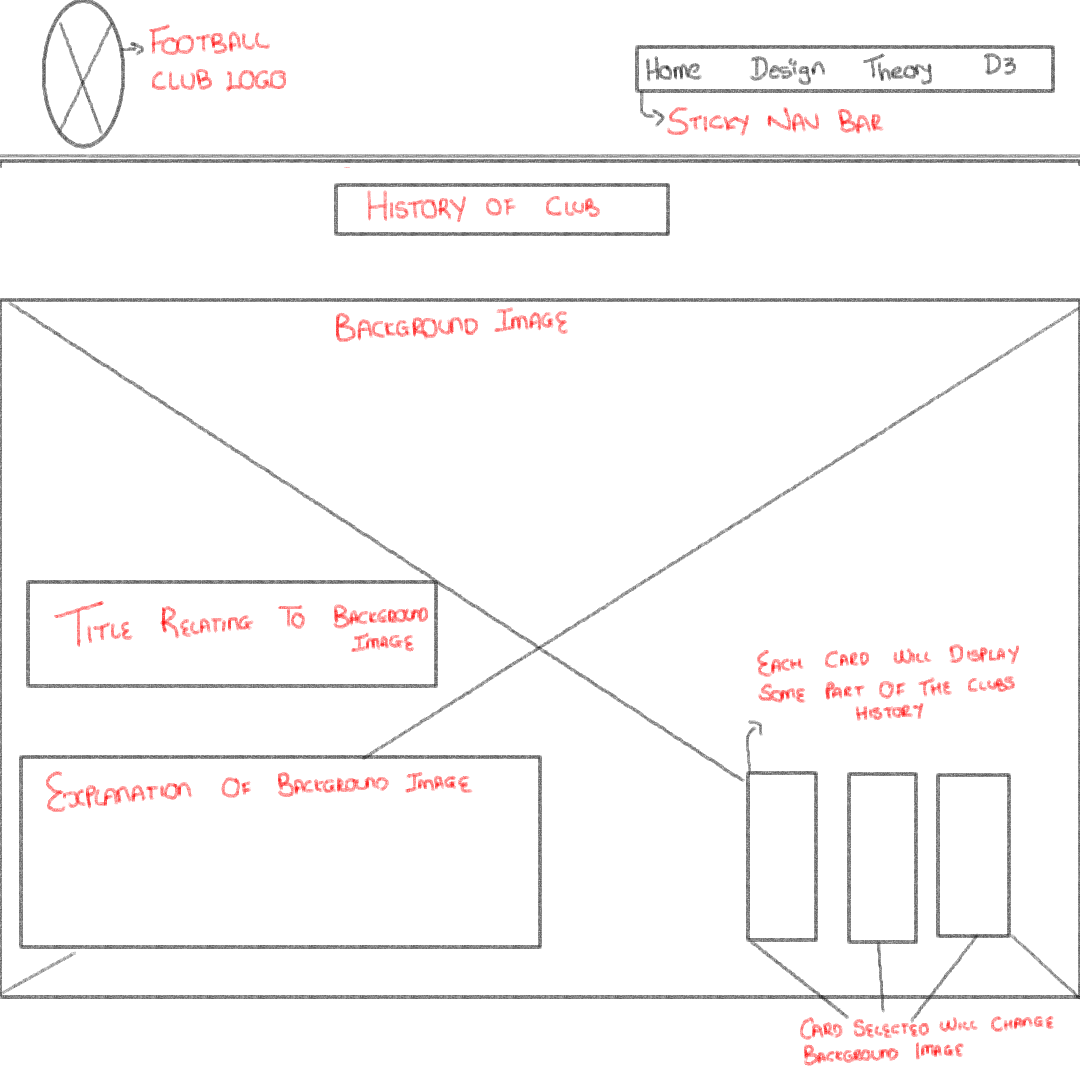 FOOTBALL
CLUB LOGO
Home Design Theory D3
STICKY NAV BAR
HISTORY OF CLUB
BACKGROUND IMAGE
TITLE RELATING TO BACKGROUND
IMAGE
EACH CARD WILL DISPLAY
SOME PART OF THE CLUBS
HISTORY
EXPLANATION OF BACKGROUND IMAGE
CARD SELECTED WILL CHANGE
BACKGROUND IMAGE